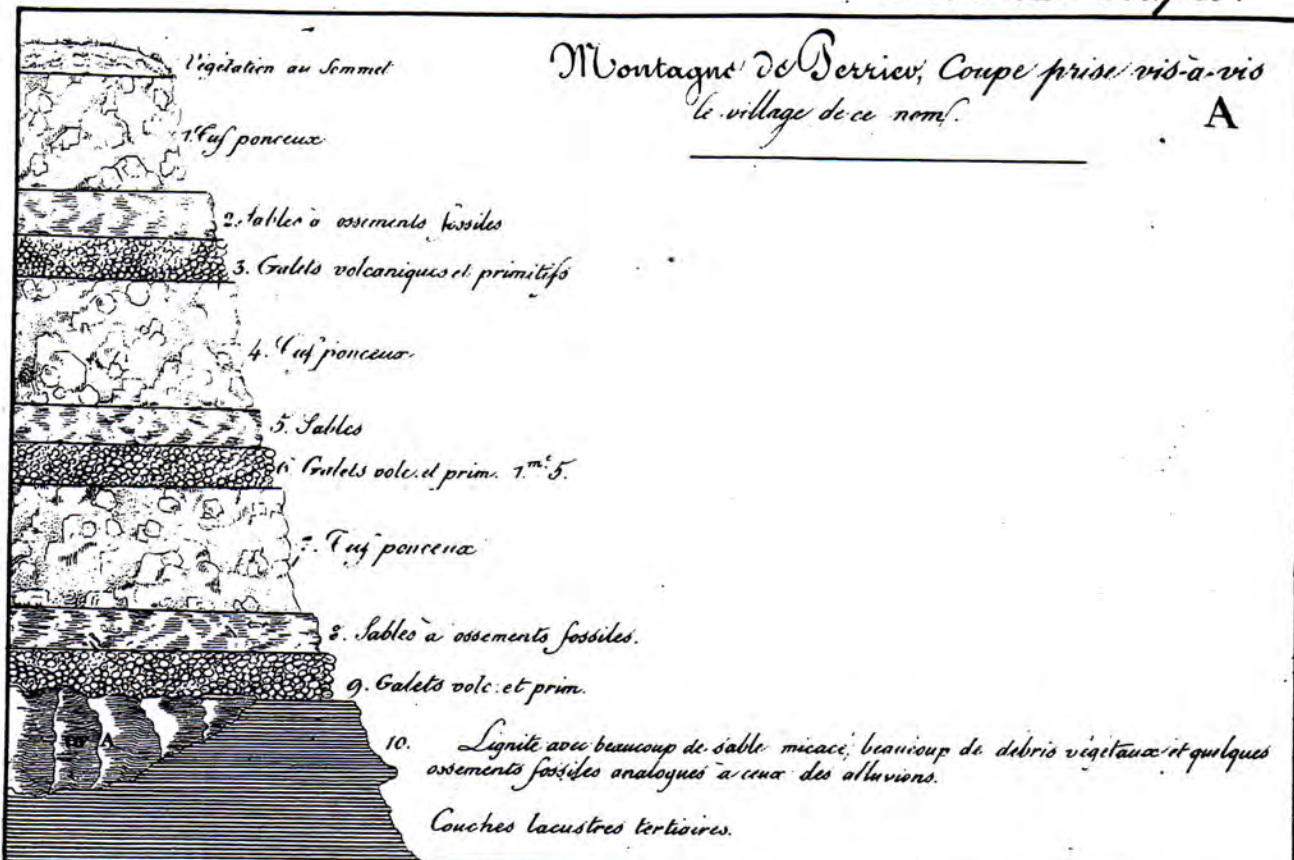 Montagne de Perrier, Coupe prise vis-à-vis
le village de ce nom.
A
Végétation au Sommet
1. Tuf ponceux
2. Sables à ossements fossiles
3. Galets volcaniques et primitifs
4. Tuf ponceux
5. Sables
6 Galets volc. et prim. 1.mt 5.
7. Tuf ponceux
8. Sables à ossements fossiles.
9. Galets volc. et prim.
A
10. Lignite avec beaucoup de sable micacé, beaucoup de debris végétaux et quelques
ossements fossiles analogues à ceux des alluvions.
Couches lacustres tertiaires.